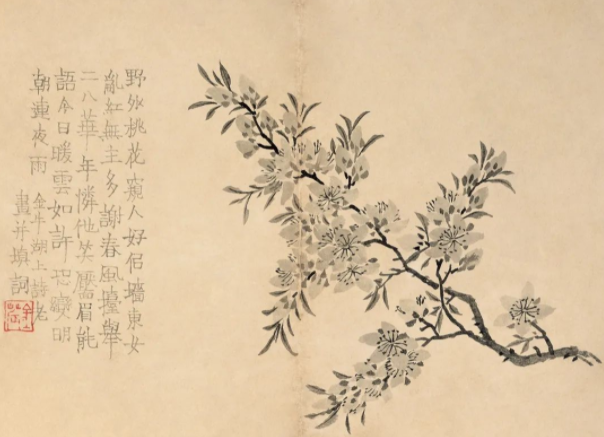 野外桃花窺人好侶墻東女
亂紅無主多謝春風擡舉
二八華年憐他笑靨眉能
語今日暖雲如許恐變明
朝連夜雨 金牛湖上詩老
畫并填詞